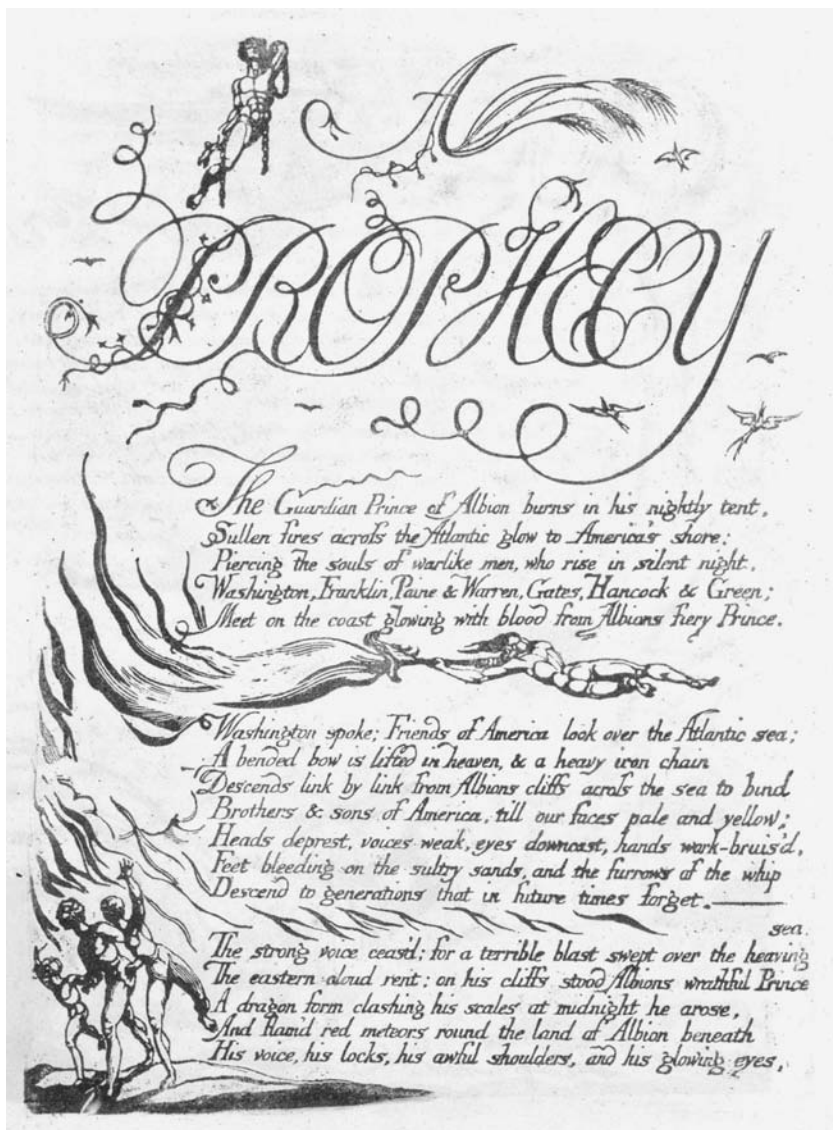 A
PROPHECY
The Guardian Prince of Albion burns in his nightly tent,
Sullen fires across the Atlantic glow to America's shore:
Piercing the souls of warlike men, who rise in silent night,
Washington, Franklin, Paine & Warren, Gates, Hancock & Green;
Meet on the coast glowing with blood from Albions fiery Prince.
Washington spoke; Friends of America look over the Atlantic sea;
A bended bow is lifted in heaven, & a heavy iron chain
Descends link by link from Albions cliffs across the sea to bind
Brothers & sons of America, till our faces pale and yellow;
Heads deprest, voices weak, eyes downcast, hands work-bruis'd,
Feet bleeding on the sultry sands, and the furrows of the whip
Descend to generations that in future times forget.
The strong voice ceas'd; for a terrible blast swept over the heaving sea.
The eastern cloud rent; on his cliffs stood Albions wrathful Prince
A dragon form clashing his scales at midnight he arose,
And flam'd red meteors round the land of Albion beneath
His voice, his locks, his awful shoulders, and his glowing eyes,